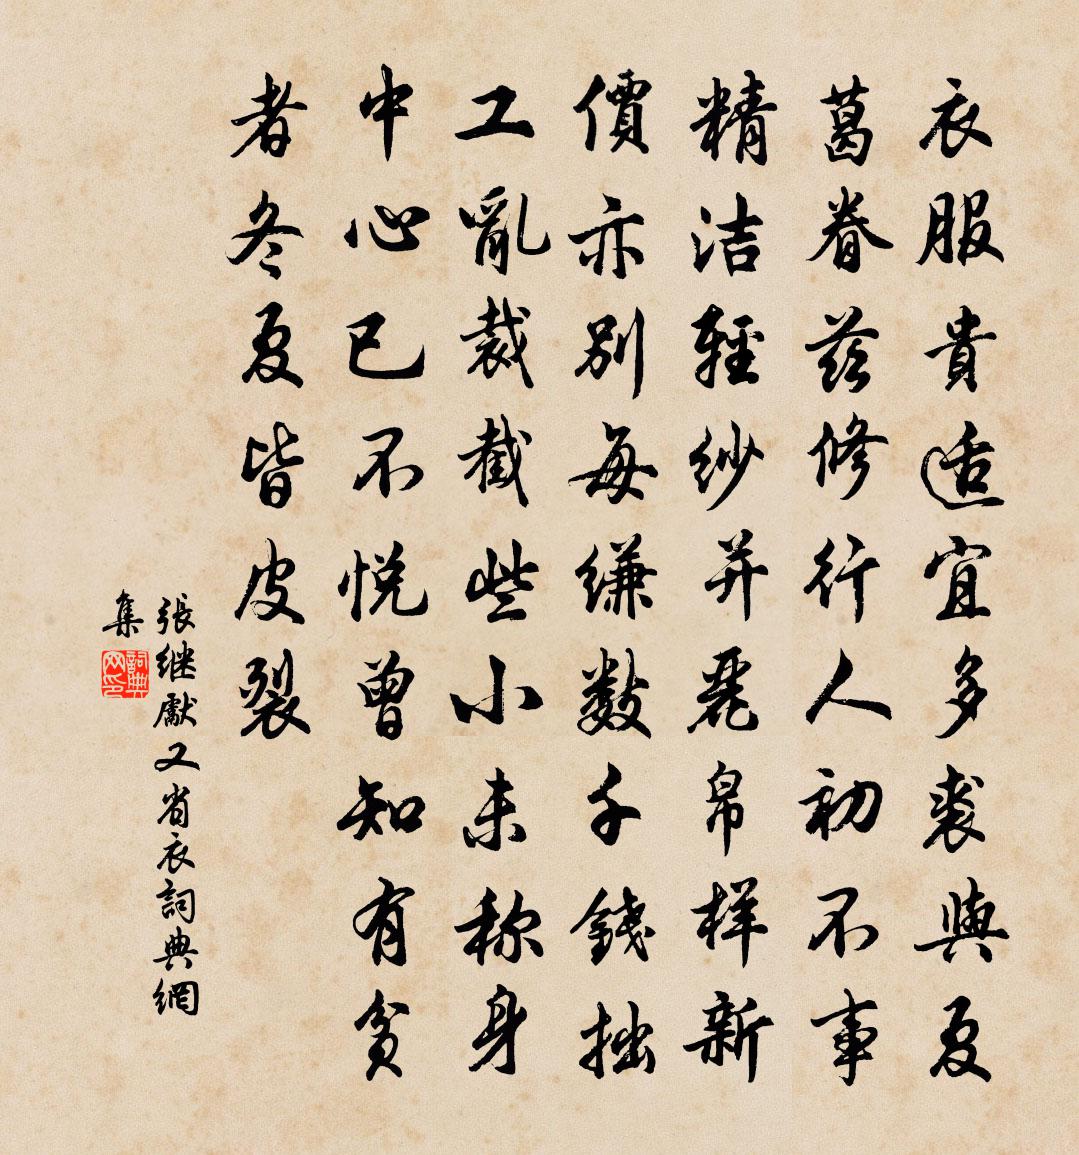 衣服貴适宜多裘與夏
葛眷兹修行人初不事
精洁輕紗并麗帛样新
價亦别每縑数千錢拙
工亂裁截些小未称身
中心已不悦曾知有贫
者冬夏皆皮裂
張継獻又省衣詞典網
集
詞典网印